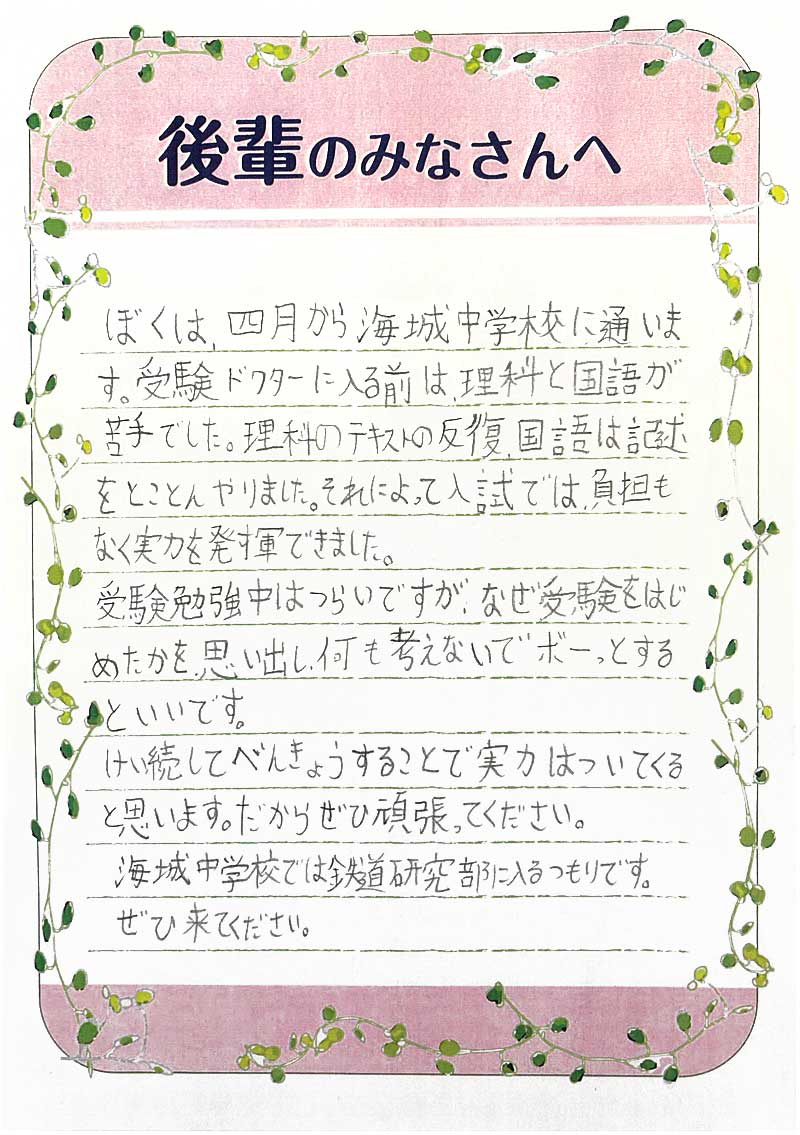 後輩のみなさんへ
ぼくは、四月から海城中学校に通いま
す。受験ドクターに入る前は、理科と国語が
苦手でした。理科のテキストの反復、国語は記述
をとことんやりました。それによって入試では、負担も
なく実力を発揮できました。
受験勉強中はつらいですが、なぜ受験をはじ
めたかを、思い出し、何も考えないでボーっとする
といいです。
けい続してべんきょうすることで実力はついてくる
と思います。だからぜひ頑張ってください。
海城中学校では鉄道研究部に入るつもりです。
ぜひ来てください。